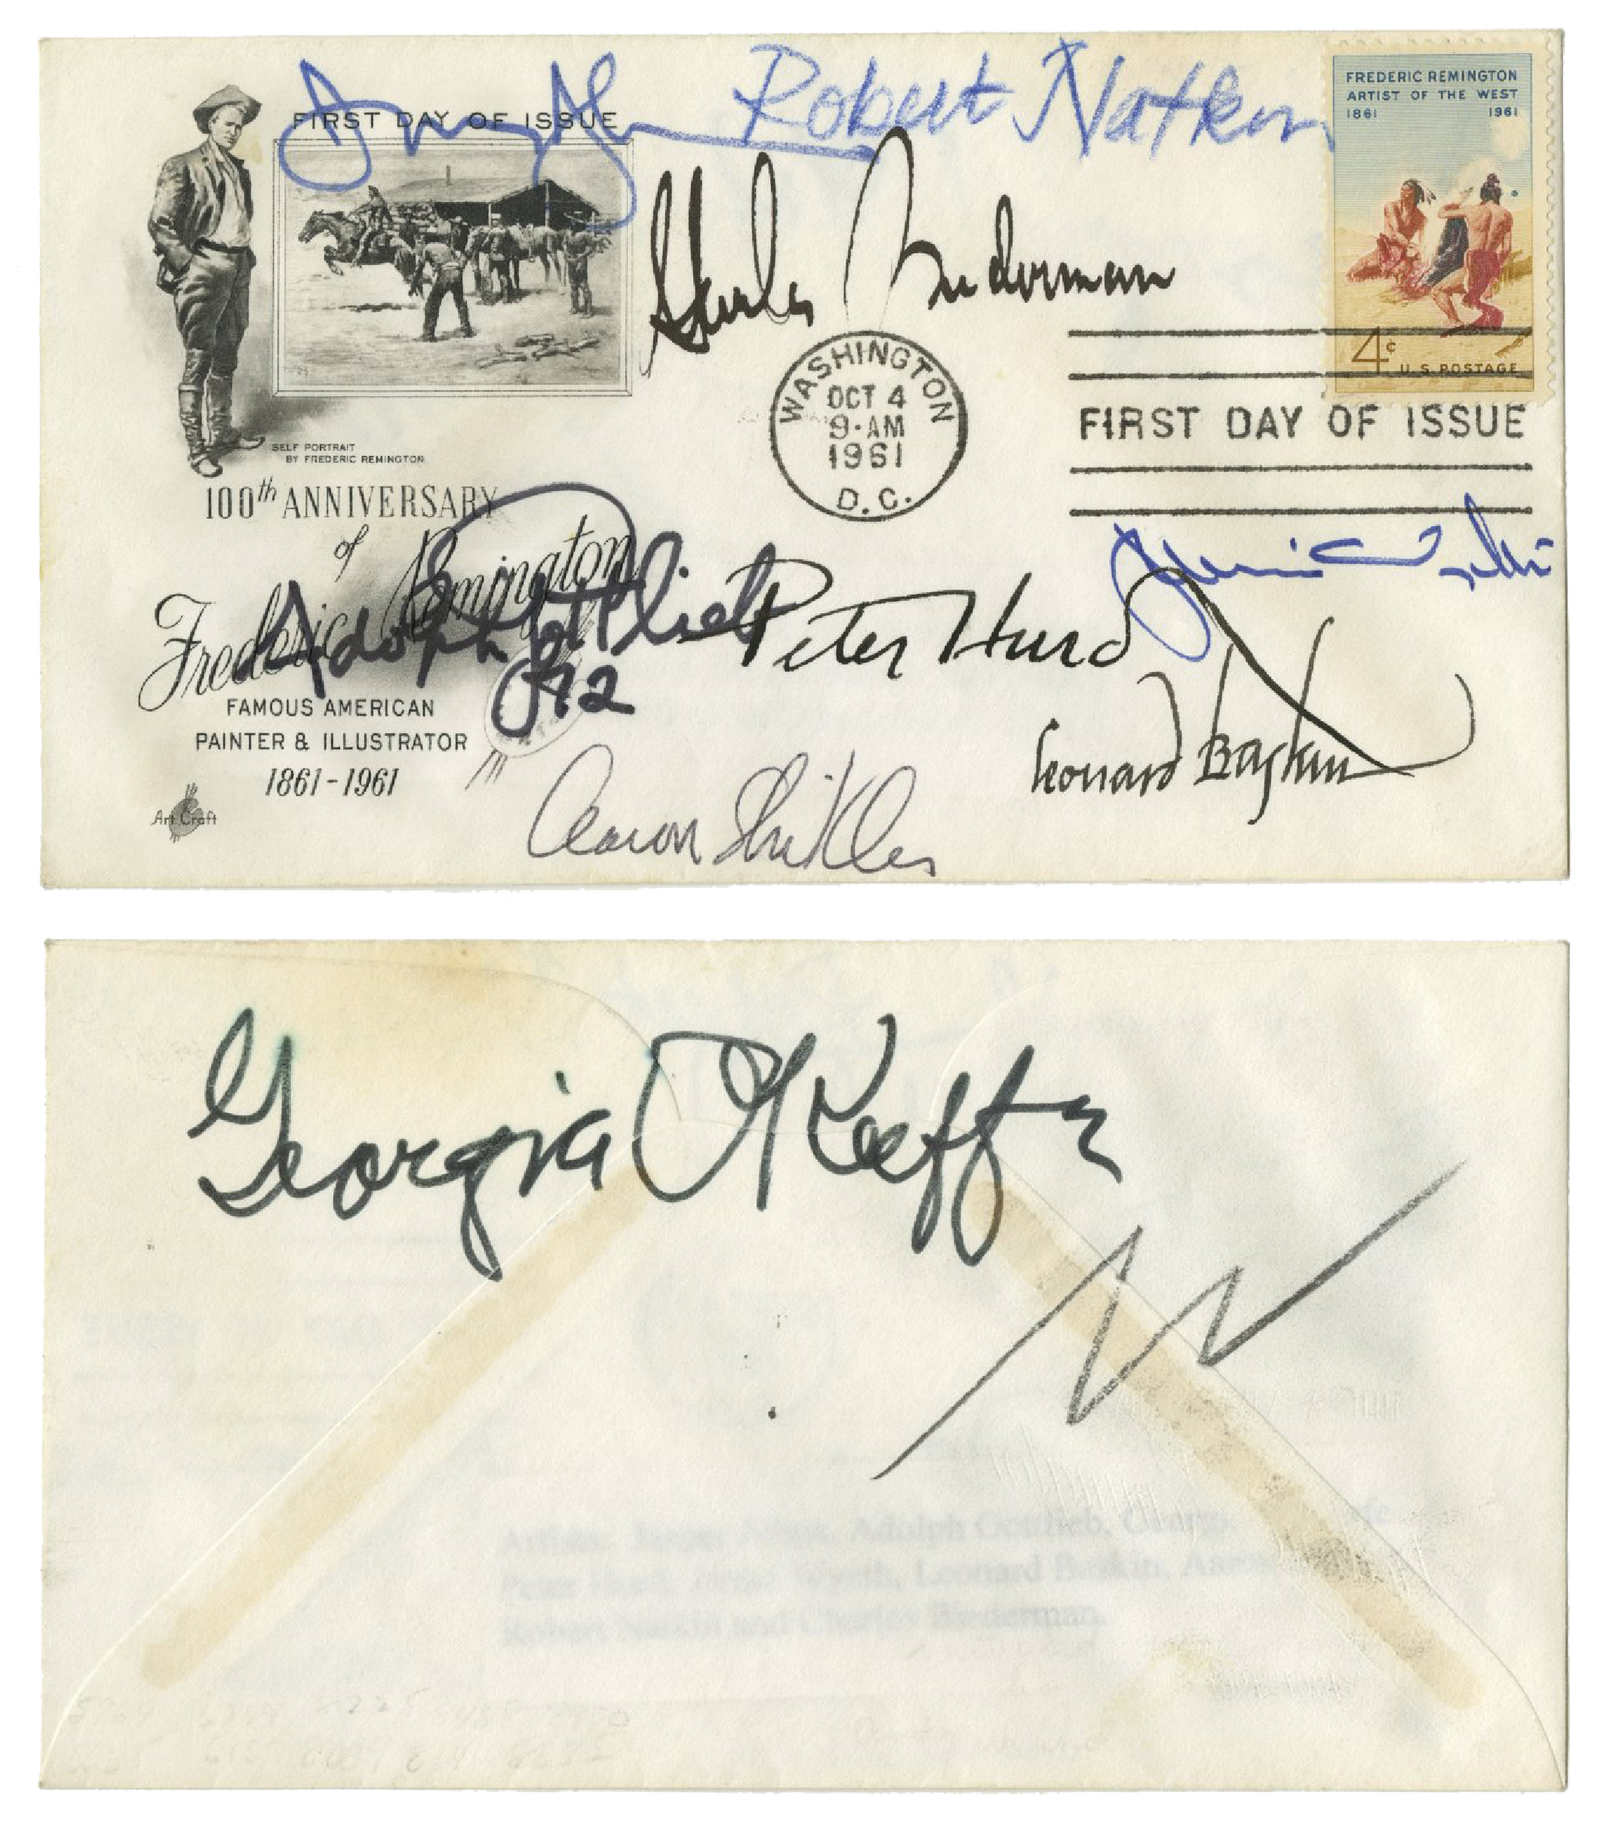 FIRST DAY OF ISSUE
Robert Natkin
FREDERIC REMINGTON
ARTIST OF THE WEST
1861 1961
Charles Biederman
WASHINGTON
OCT 4
9-AM
1961
D.C.
4c U.S. POSTAGE
FIRST DAY OF ISSUE
SELF PORTRAIT
BY FREDERIC REMINGTON
100th ANNIVERSARY
of
Frederic Remington
Adolph Gottlieb
Peter Hurd
FAMOUS AMERICAN
PAINTER & ILLUSTRATOR
1861-1961
Leonard Baskin
Art Craft
Aaron Shikler
Georgia O'Keeffe
Adolph Gottlieb,
Leonard Baskin,
Robert Natkin and Charles Biederman.